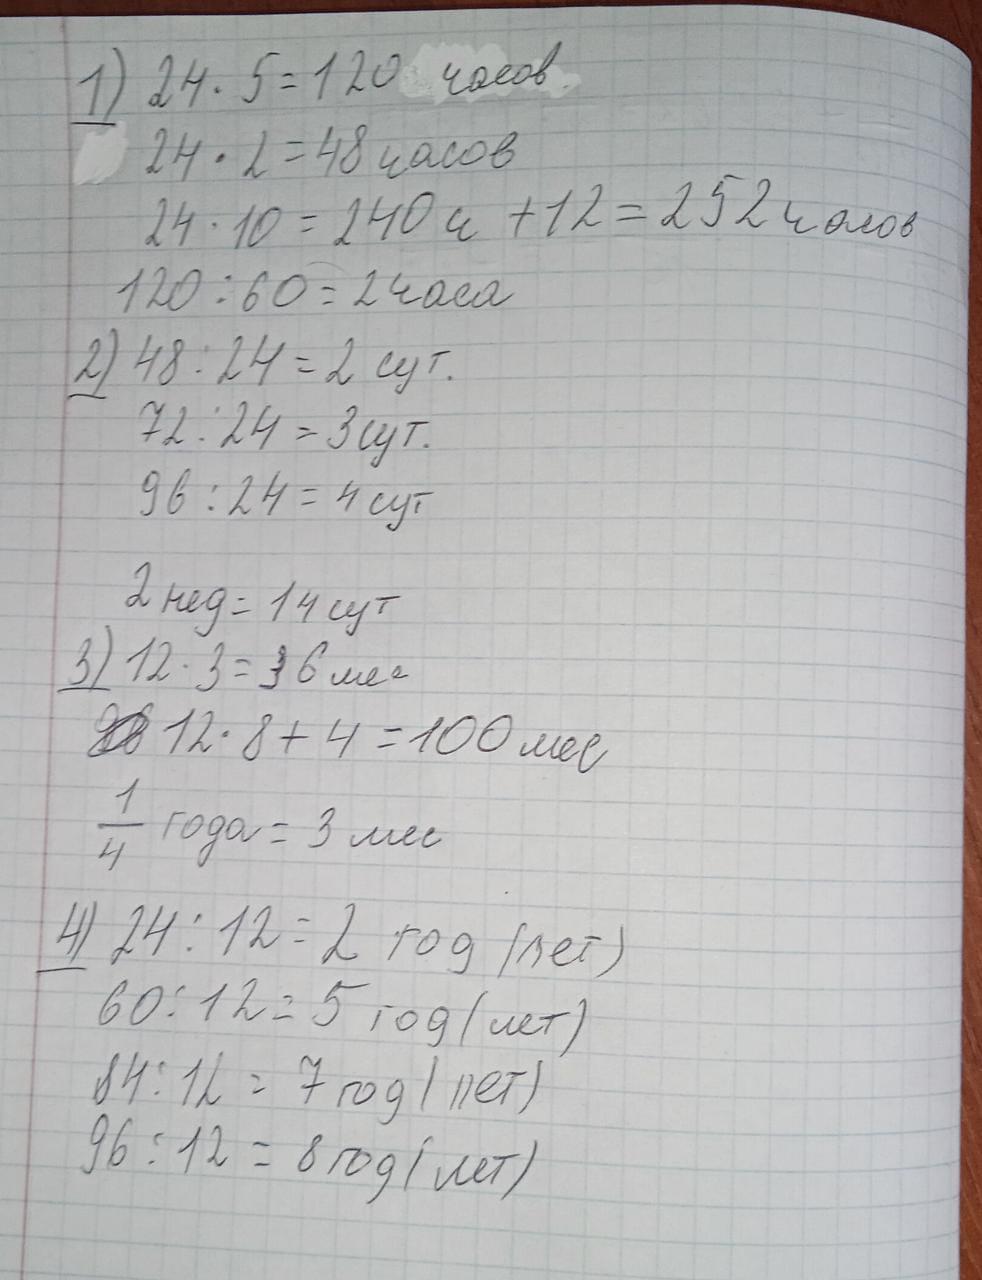 1) 24 · 5 = 120 часов.
24 · 2 = 48 часов
24 · 10 = 240 ч + 12 = 252 часов
120 : 60 = 2 часа
2) 48 : 24 = 2 сут.
72 : 24 = 3 сут.
96 : 24 = 4 сут
2 нед = 14 сут
3) 12 · 3 = 36 мес
12 · 8 + 4 = 100 мес
1/4 года = 3 мес
4) 24 : 12 = 2 год (лет)
60 : 12 = 5 год (лет)
84 : 12 = 7 год (лет)
96 : 12 = 8 год (лет)